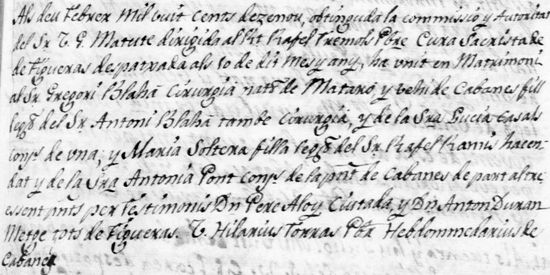 Als deu Febrer Mil vuit cents dezenou, obtinguda la commissio y Autoritat
del Sr V. G. Matute dirigida al Rt Rafel Tremols Pbre Cura Sacrista de
de Figueras despatxada als 10 de dit mes y any, ha unit en Matrimoni
al Sr Gregori Blahá Cirurgiá natl de Mataró y vehi de Cabanes fill
legm del Sr Antoni Blahá tambe Cirurgiá, y de la Sra Lucia Casals
conjs de una; y Maria Soltera filla legma del Sr Rafel Ramis hacen-
dat y de la Sra Antonia Pont conjs de la pnt de Cabanes de part altre,
essent pnts per testimonis Dn Pere Aloy Ciutadá, y Dn Anton Duran
Metge tots de Figueras. V. Hilarius Torras Pbr Hebdommedarius de
Cabanes